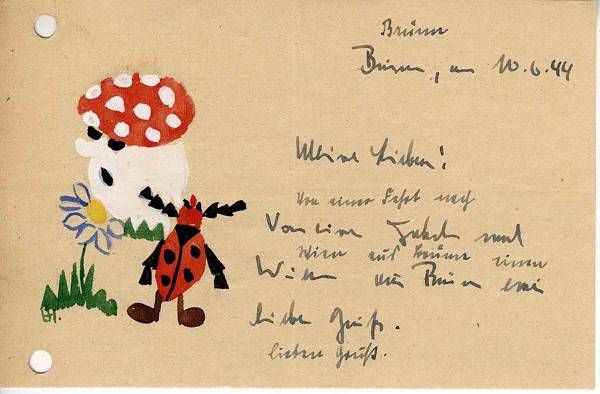 Brünn
Brünn, am 10.6.44
Meine Lieben!
von einer Fahrt nach
Von einer Fahrt nach
Wien aus Brünn einen
Wien aus Brünn einen
lieben Gruß.
lieben Gruß.